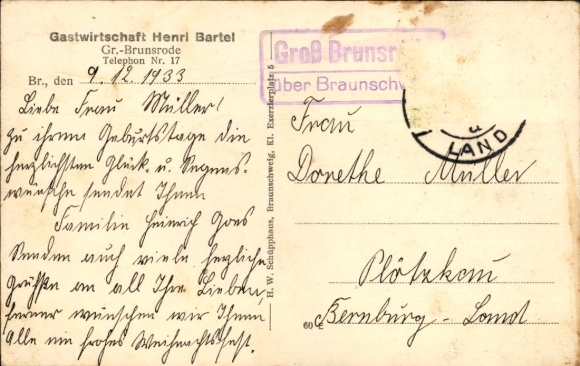 Gastwirtschaft Henri Bartel
Gr.-Brunsrode
Telephon Nr. 17
Br., den 9.12.1933
Liebe Frau Müller!
Zu ihrem Geburtstage die
herzlichsten Glück- u. Segens-
wünsche sendet Ihnen
Familie Heinrich Goes
Senden auch viele herzliche
Grüße an all Ihre Lieben,
ferner wünschen wir Ihnen
Alle ein frohes Weihnachtsfest.
H. W. Schüpphaus, Braunschweig, Kl. Exerzierplatz 5
Groß Brunsr
über Braunschw
LAND
Frau
Dorethe Müller
Plötzkau
Bernburg-Land
60